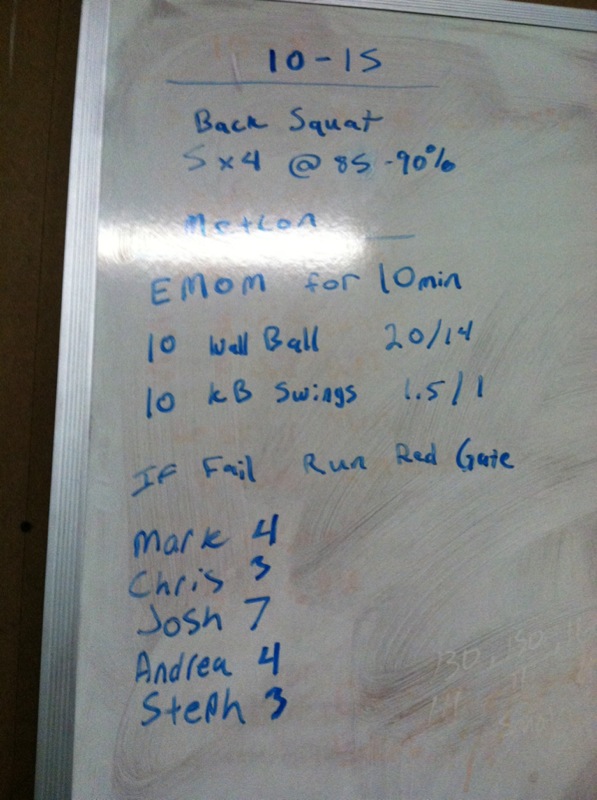 10-15
Back Squat
5x4 @ 85-90%
Metcon
EMOM for 10min
10 Wall Ball 20/14
10 KB Swings 1.5/1
If Fail Run Red Gate
Mark 4
Chris 3
Josh 7
Andrea 4
Steph 3
130, 150,